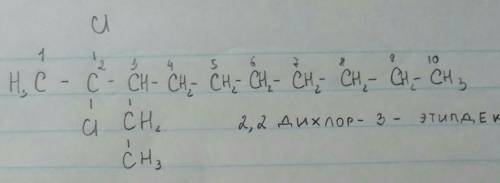 Cl
1 2 3 4 5 6 7 8 9 10
H₃C - C - CH - CH₂ - CH₂ - CH₂ - CH₂ - CH₂ - CH₂ - CH₃
Cl CH₂ 2,2 дихлор - 3 - этилдек
CH₃